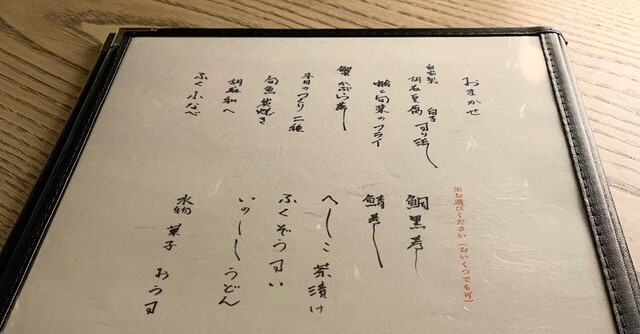 おまかせ
自家製 胡麻豆腐 白子 すり流し
蛤と旬菜のフライ
蟹かぶら蒸し
本日のつくり 二種
旬魚 炭焼き
胡麻和へ
ふく小なべ
※お選びください(おいくつでも可)
鯛黒寿し
鯖寿し
へしこ茶漬け
ふくぞうすい
いのししうどん
水物 菓子 おうす